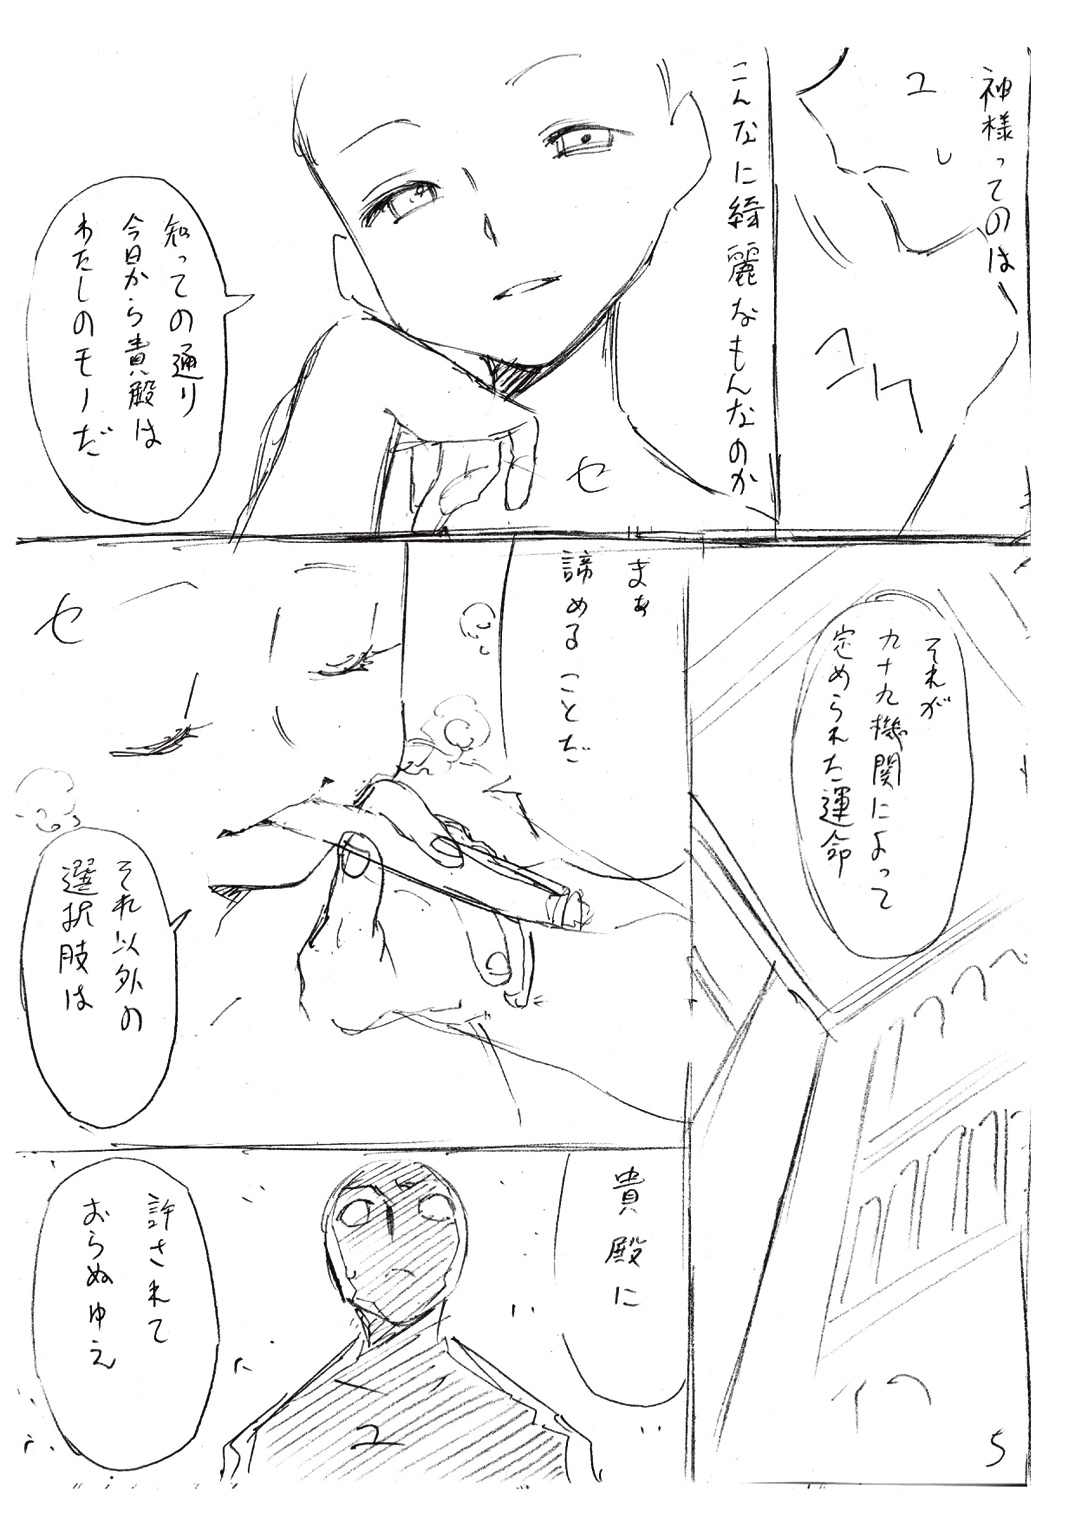 神様ってのは
ユ
コクッ
こんなに綺麗なもんなのか
セ
知っての通り
今日から貴殿は
わたしのモノだ
それが
九十九機関によって
定められた運命
まぁ
諦めることだ
セ
それ以外の
選択肢は
貴殿に
ユ
許されて
おらぬゆえ
5